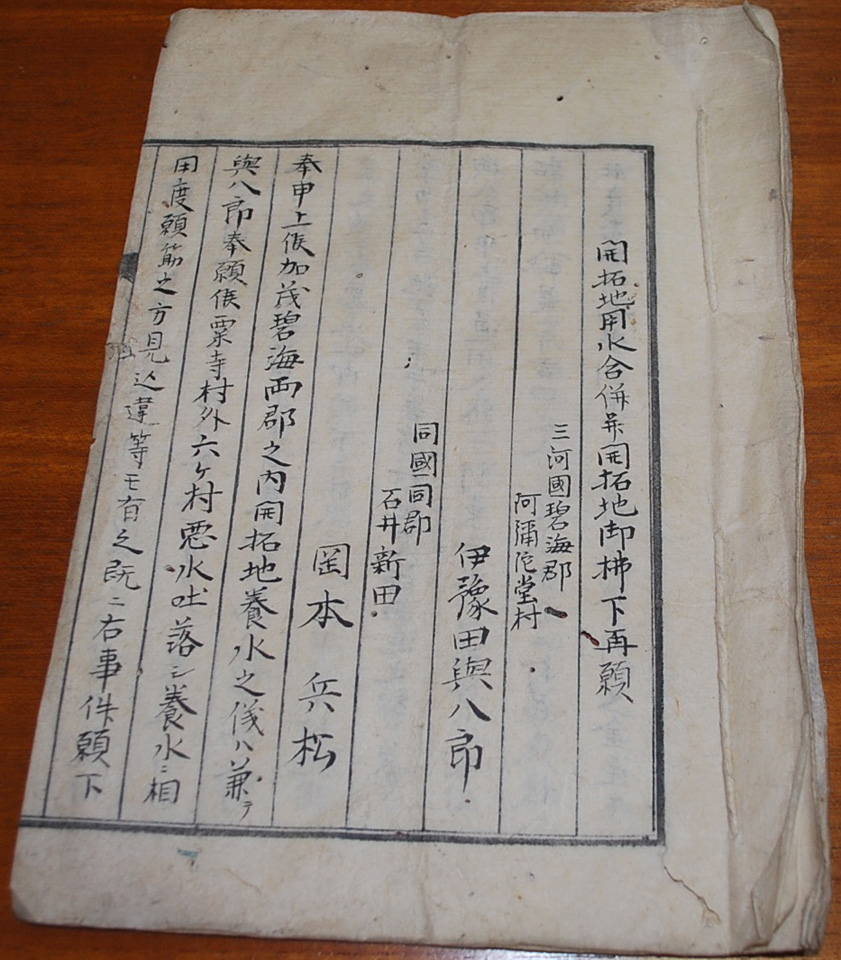 開拓地用水合併并開拓地御拂下再願
三河國碧海郡
阿彌陀堂村
伊豫田與八郎
同國同郡
石井新田
岡本兵松
奉申上候加茂碧海両郡之内開拓地養水之儀ハ兼テ
與八郎奉願候粟寺村外六ヶ村悪水吐落シ養水ニ相
用度願筋之方見込違等モ有之既ニ右事件願下